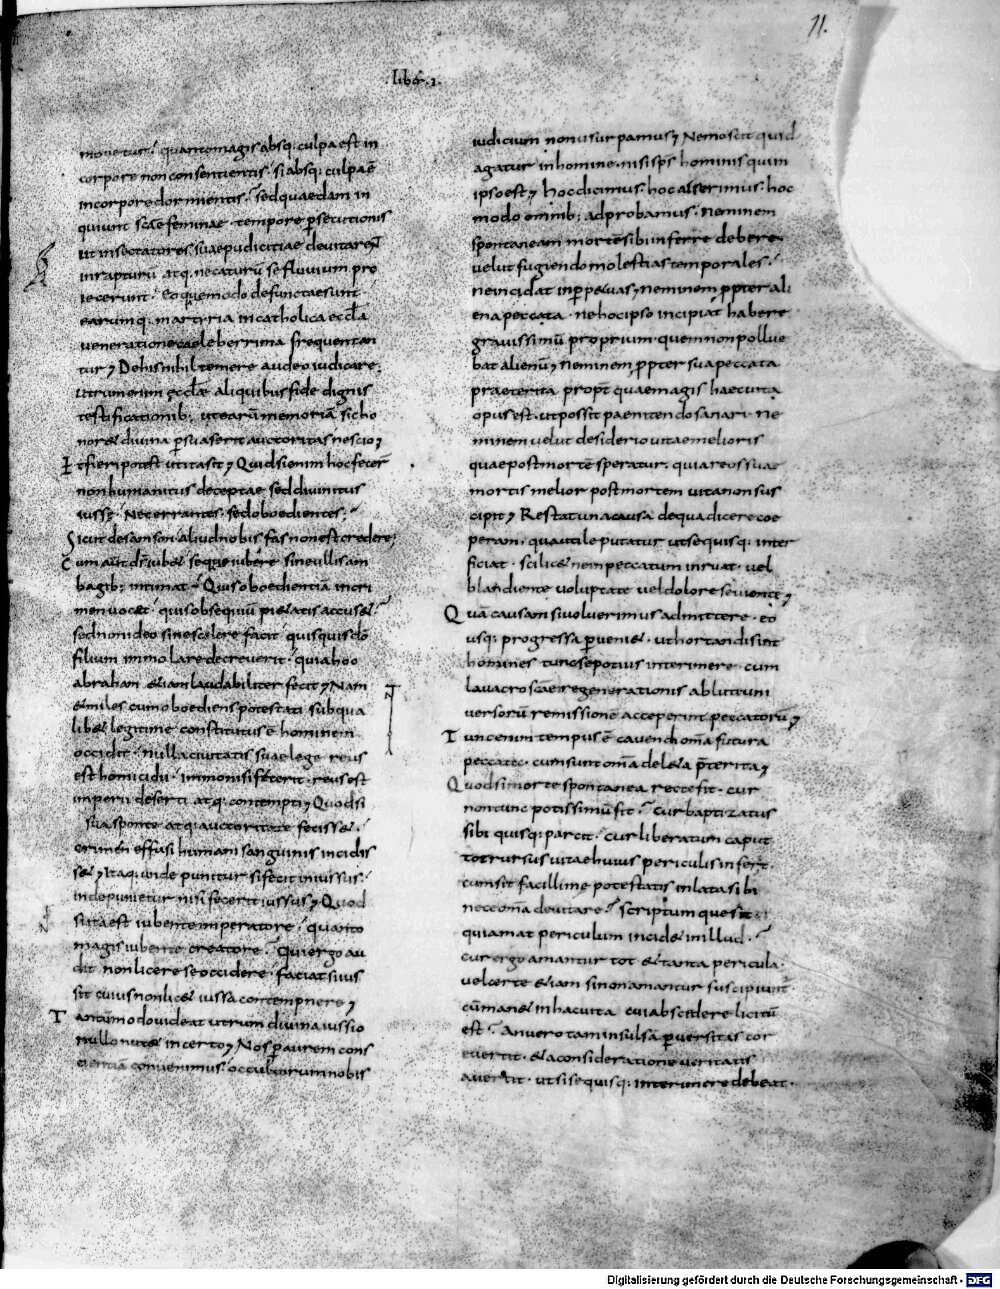 11.
lib&. 1.
mouetur. quantomagis absq; culpa est in
corpore nonconsentientis. si absq; culpa ē
incorpore dormientis. Sed quaedam in
quiunt scae feminae tempore psecutionis
ut insectatores suae pudicitiae deuitarent
inrapturū atq; necaturū se fluuium pro
iecerunt. eoque modo defunctae sunt
earumq; martyria in catholica eccla
ueneratione caeleberrima frequentan
tur; De his nihil temere audeo iudicare.
utrum enim ecclae aliquibus fide dignis
testificationib; ut earū memoriā sic ho
nor& diuina psuaserit auctoritas nescio;
Et fieri potest ut ita sit; Quid si enim hoc fecer̄
non humanitus deceptae sed diuinitus
iussę. Nec errantes. sed oboedientes;
Sicut de samson. aliud nobis fas non est credere;
Cum aut ds iub& seque iubere sine ullis am
bagib; intimat. Quis oboedientiā in cri
men uoc&. quis obsequiū pi&atis accus&.
sed non ideo sine scelere facit quisquis dō
filium immolare decreuerit. quia hoc
abraham &iam laudabiliter fecit; Nam
& miles cum oboediens potestati sub qua
lib& legitime constitutus ē hominem
occidit. nulla ciuitatis suae lege reus
est homicidii. immo nisi fecerit. reus est
imperii deserti atq; contempti; Quod si
sua sponte atq; auctoritate feciss&.
crimen effusi humani sanguinis incidis
s&; Itaq; unde punitur si fecit iniussus.
inde punietur nisi fecerit iussus; Quod
si ita est iubente imperatore. quanto
magis iubente creatore. Qui ergo au
dit non licere se occidere. faciat si ius
sit cuius non lic& iussa contempnere;
Tantūmodo uideat utrum diuina iussio
nullo nut& incerto; Nos p aurem cons
cientiā conuenimus. occultorum nobis
iudicium non usurpamus; Nemo scit quid
agatur in homine. nisi sps hominis qui in
ipso est; hoc dicimus. hoc asserimus. hoc
modo omnib; adprobamus. neminem
spontaneam mortē sibi inferre debere.
uelut fugiendo molestias temporales.
ne incidat in pp&uas; neminem ppter ali
ena peccata. ne hoc ipso incipiat habere
grauissimū proprium. quem non pollue
bat alienū; neminem ppter sua peccata
praeterita propt quae magis hac uita
opus est. ut possit paenitendo sanari. ne
minem uelut desiderio uitae melioris
quae post mortē speratur. quia reos suae
mortis melior post mortem uita non sus
cipit; Restat una causa de qua dicere coe
peram. qua utile putatur ut se quisq; inter
ficiat. scilic& ne in peccatum inruat. uel
blandiente uoluptate uel dolore seuiente;
Quā causam si uoluerimus admittere. eo
usq; progressa pueni&. ut hortandi sint
homines tunc se potius interimere. cum
lauacro scae regenerationis abluti uni
uersorū remissionē acceperint peccatorū;
Tunc enim tempus ē cauendi omā futura
peccata. cum sunt omā del&a pterita;
Quod si morte spontanea recte fit. cur
non tunc potissimū fit. cur baptizatus
sibi quisq; parcit. cur liberatum caput
tot rursus uitae huius periculis inserit.
cum sit facillime potestatis inlata sibi
nece omā deuitare. scriptum que sit
qui amat periculum incid& in illud.
cur ergo amantur tot & tanta pericula.
uel certe &iam si non amantur suscipiunt̄
cū man& in hac uita cui abscedere licitū
est. An uero tam insulsa puersitas cor
euertit. & a consideratione ueritatis
auertit. ut si se quisq; interimere debeat.
Digitalisierung gefördert durch die Deutsche Forschungsgemeinschaft - DFG